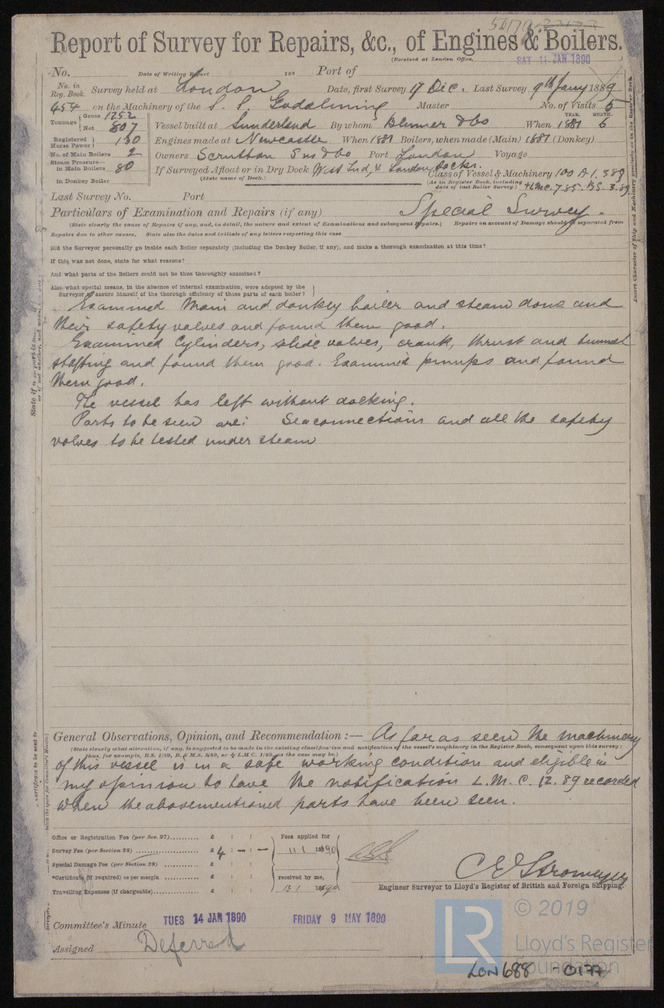 50170
Report of Survey for Repairs, &c., of Engines & Boilers.
(Received at London Office, SAT 11 JAN 1890
No. Date of Writing Report 188 Port of
No. in Reg. Book. Survey held at London Date, first Survey 17 Dec. Last Survey 9th Jany 1889
454 on the Machinery of the S. S. Godalming Master No. of Visits 5
Tonnage Gross 1252 Net 807 Vessel built at Sunderland By whom Blumer & Co When 1881 YEAR. MONTH. 6
Registered Horse Power 130 Engines made at Newcastle When 1881 Boilers, when made (Main) 1881 (Donkey)
No. of Main Boilers 2 Owners Scrutton Sons & Co Port London Voyage
Steam Pressure in Main Boilers 80 If Surveyed Afloat or in Dry Dock West Ind. & London Docks. Class of Vessel & Machinery 100 A1. 3.89
in Donkey Boiler (State name of Dock.) (As in Register Book, including date of last Boiler Survey.) +LMC. 7.85. BS. 3.89
Last Survey No. Port
Particulars of Examination and Repairs (if any) Special Survey.
(State clearly the cause of Repairs if any, and, in detail, the nature and extent of Examinations and subsequent Repairs.) Repairs on account of Damage should be separated from
Repairs due to other causes. State also the dates and initials of any letters respecting this case
Did the Surveyor personally go inside each Boiler separately (including the Donkey Boiler, if any), and make a thorough examination at this time?
If this was not done, state for what reasons?
And what parts of the Boilers could not be thus thoroughly examined?
Also what special means, in the absence of internal examination, were adopted by the
Surveyor to assure himself of the thorough efficiency of those parts of each boiler?
Examined Main and donkey boiler and steam dome and
their safety valves and found them good.
Examined Cylinders, slide valves, crank, thrust and tunnel
shafting and found them good. Examined pumps and found
them good.
The vessel has left without docking.
Parts to be seen are: Seaconnections and all the safety
valves to be tested under steam
General Observations, Opinion, and Recommendation :— As far as seen the machinery
(State clearly what alteration, if any, is suggested to be made in the existing classification and notification of the vessel's machinery in the Register Book, consequent upon this survey:
of this vessel is in a safe working condition and eligible in
my opinion to have the notification L.M.C. 12.89 recorded
when the abovementioned parts have been seen.
Office or Registration Fee (per Sec. 27) £
Survey Fee (per Section 28) £ 4 — — Fees applied for 11.1 1890
Special Damage Fee (per Section 28) £
*Certificate (if required) as per margin £ received by me,
Travelling Expenses (if chargeable) £ 13.1 1890
C E Stromeyer
Engineer Surveyor to Lloyd's Register of British and Foreign Shipping.
Committee's Minute TUES 14 JAN 1890 FRIDAY 9 MAY 1890
Assigned Deferred
© 2019
LR
Lloyd's Register
Foundation
LON688 - 0177